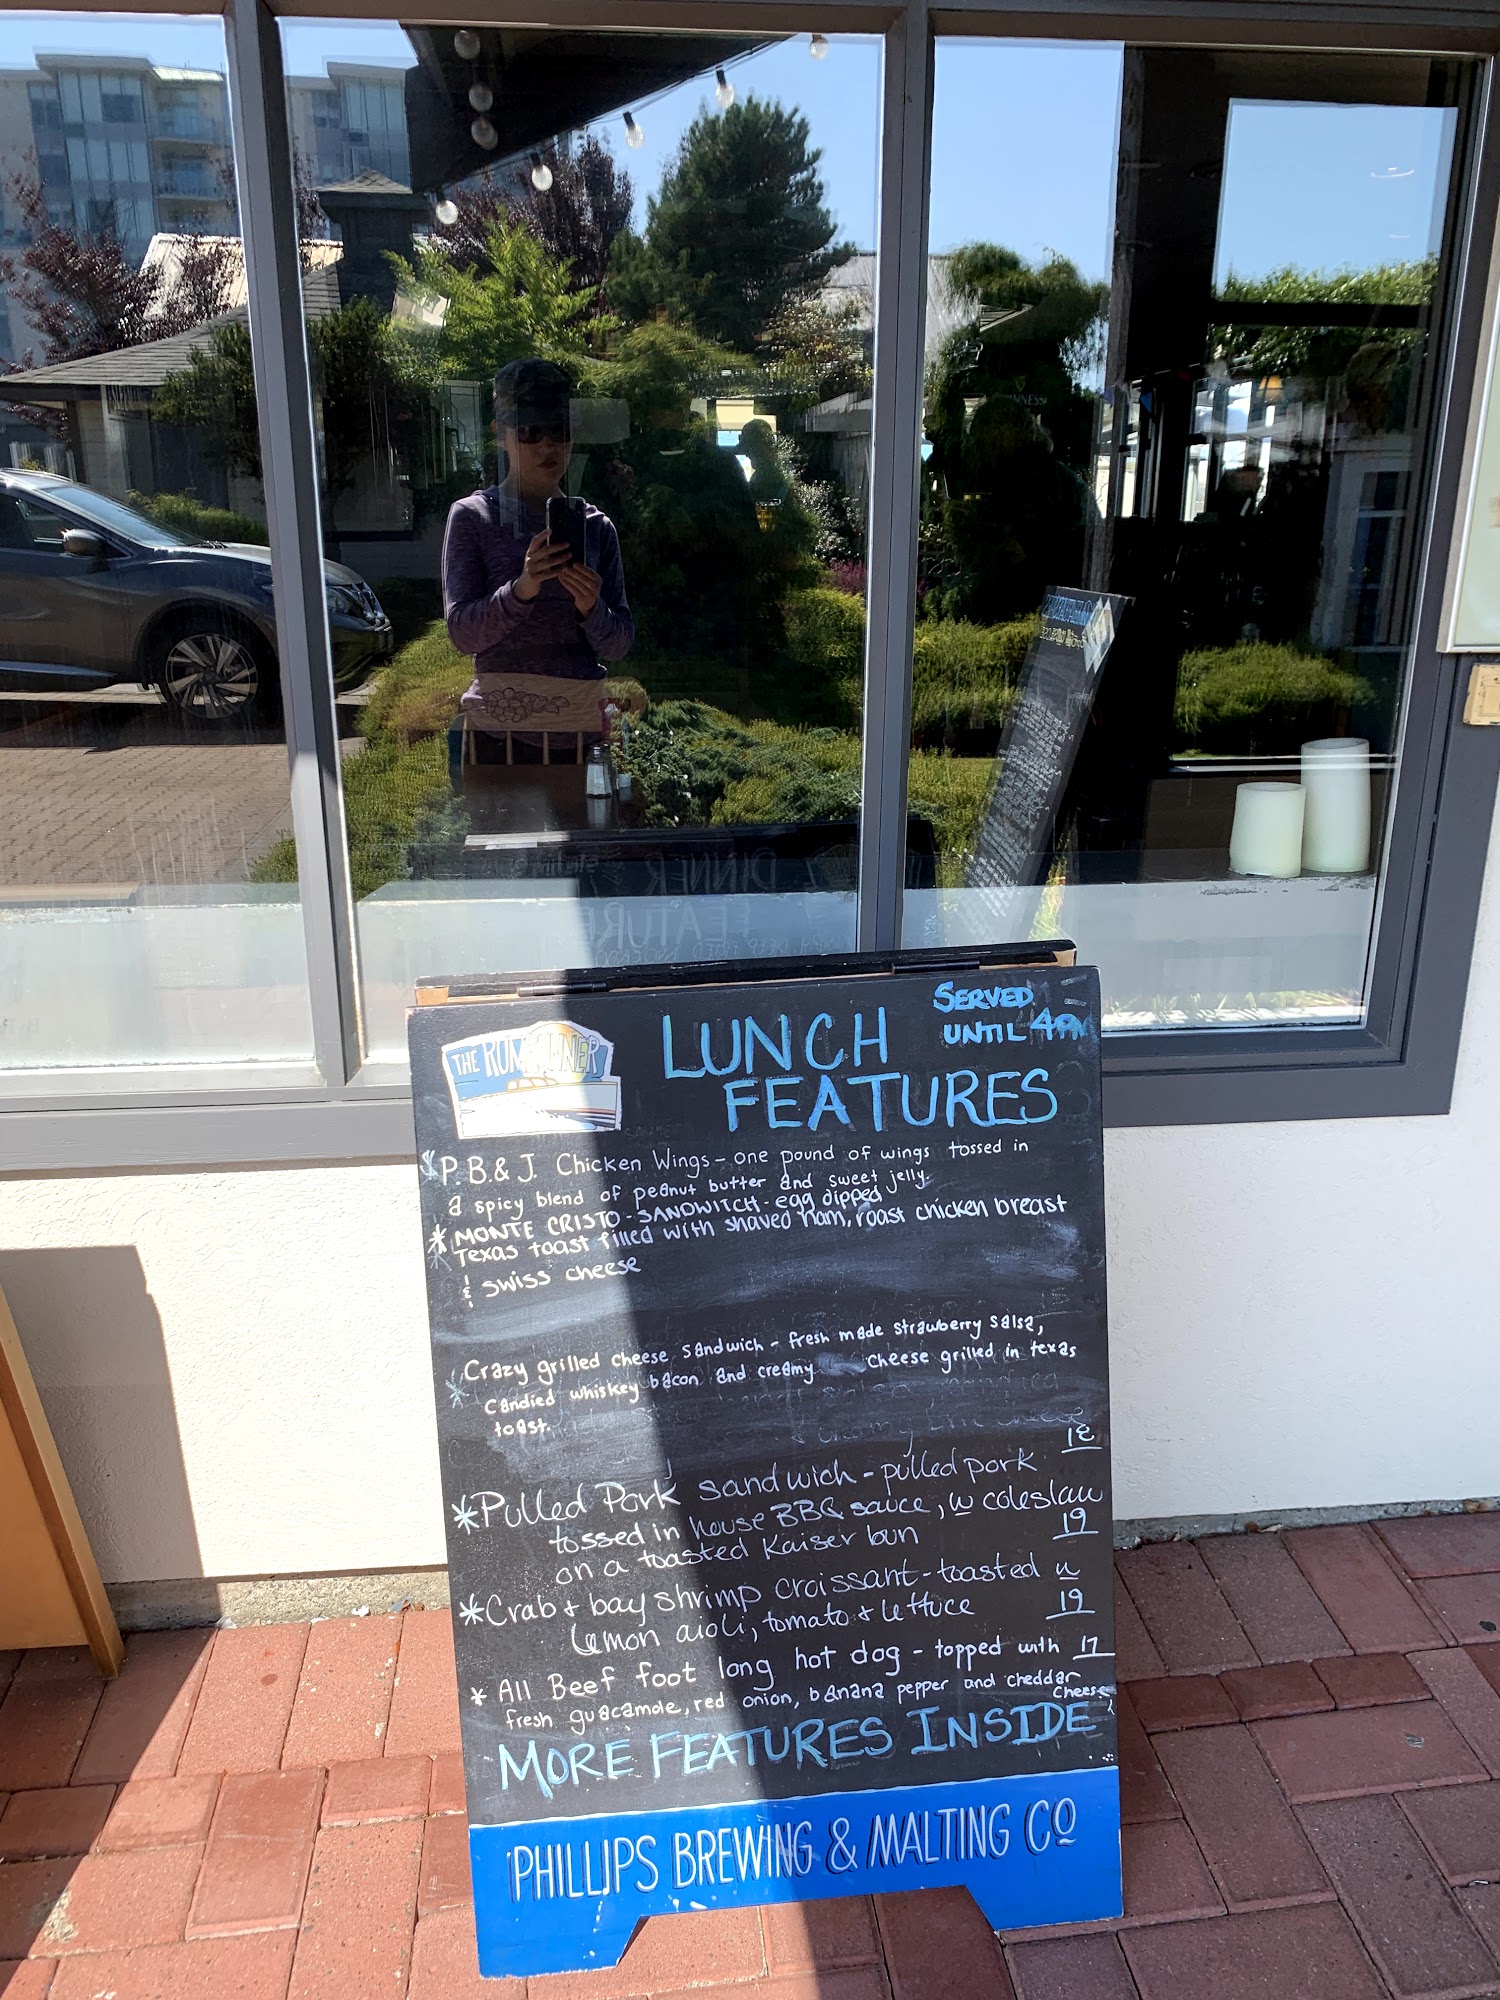 GUINNESS
DINNER
FEATURE
SERVED
UNTIL 4PM
THE RUMRUNNER
LUNCH
FEATURES
* P.B.&J. Chicken Wings - one pound of wings tossed in
a spicy blend of peanut butter and sweet jelly.
* MONTE CRISTO - SANDWITCH - egg dipped
Texas toast filled with shaved ham, roast chicken breast
& swiss cheese
* Crazy grilled cheese sandwich - fresh made strawberry salsa,
candied whiskey bacon and creamy cheese grilled in texas
toast.
18
* Pulled Pork sandwich - pulled pork
tossed in house BBQ sauce, w coleslaw
on a toasted Kaiser bun 19
* Crab + bay shrimp croissant - toasted w
lemon aioli, tomato + lettuce 19
* All Beef foot long hot dog - topped with 17
fresh guacamole, red onion, banana pepper and cheddar
cheese
MORE FEATURES INSIDE
PHILLIPS BREWING & MALTING CO